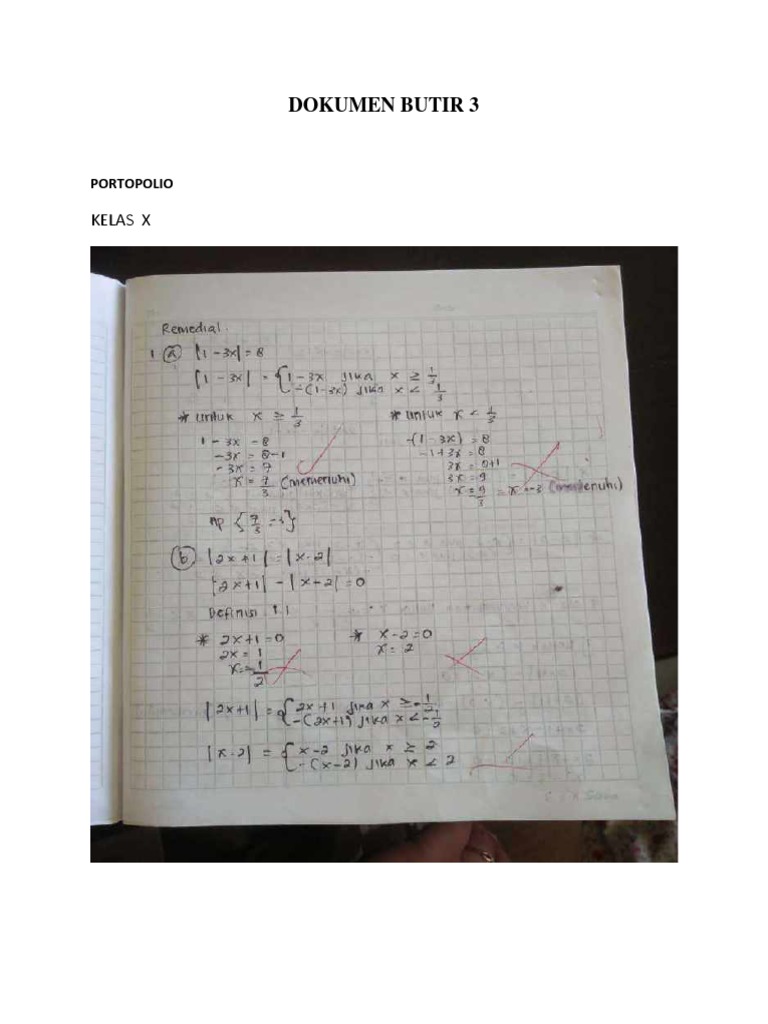 DOKUMEN BUTIR 3
PORTOPOLIO
KELAS X
Remedial.
1 (a) |1 - 3x| = 8
|1 - 3x| = { 1 - 3x jika x ≥ 1/3
-(1-3x) jika x < 1/3
* untuk x ≥ 1/3
1 - 3x = 8
-3x = 8-1
-3x = 7
x = 7/3 (memenuhi)
* untuk x < 1/3
-(1 - 3x) = 8
-1 + 3x = 8
3x = 8+1
3x = 9
x = 9/3 = x = 3 (memenuhi)
Hp { 7/3 = 3 }
(b) |2x+1| = |x-2|
|2x+1| - |x-2| = 0
Definisi 1.1
* 2x+1 = 0
2x = 1
x = -1/2
* x-2 = 0
x = 2
|2x+1| = { 2x+1 jika x ≥ -1/2
-(2x+1) jika x < -1/2
|x-2| = { x-2 jika x ≥ 2
-(x-2) jika x < 2